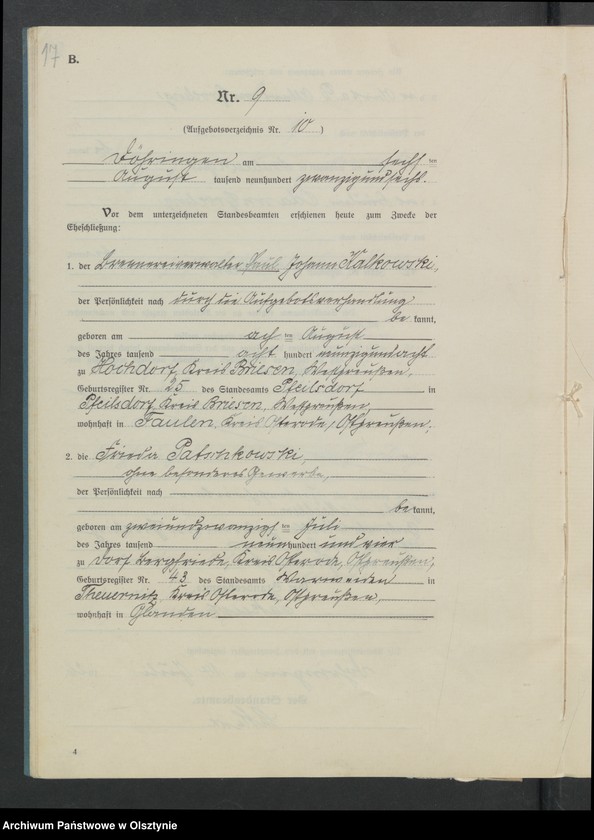 17
B.
Nr. 9
(Aufgebotsverzeichnis Nr. 10)
Döhringen am sechs ten
August tausend neunhundert zwanzigundsechs.
Vor dem unterzeichneten Standesbeamten erschienen heute zum Zwecke der
Eheschließung:
1. der Brennereiverwalter Paul Johann Kalkowski,
der Persönlichkeit nach durch die Aufgebotsverhandlung
be kannt,
geboren am ach ten August
des Jahres tausend acht hundert neunzigundacht
zu Hochdorf, Kreis Briesen, Westpreußen,
Geburtsregister Nr. 25 des Standesamts Pfeilsdorf in
Pfeilsdorf, Kreis Briesen, Westpreußen,
wohnhaft in Faulen, Kreis Osterode, Ostpreußen;
2. die Frieda Patschkowski,
ohne besonderes Gewerbe,
der Persönlichkeit nach
be kannt,
geboren am zweiundzwanzigs ten Juli
des Jahres tausend neun hundert und vier
zu Dorf Bergfriede, Kreis Osterode, Ostpreußen,
Geburtsregister Nr. 43 des Standesamts Warweiden in
Theuernitz, Kreis Osterode, Ostpreußen,
wohnhaft in Glanden
4
Archiwum Państwowe w Olsztynie